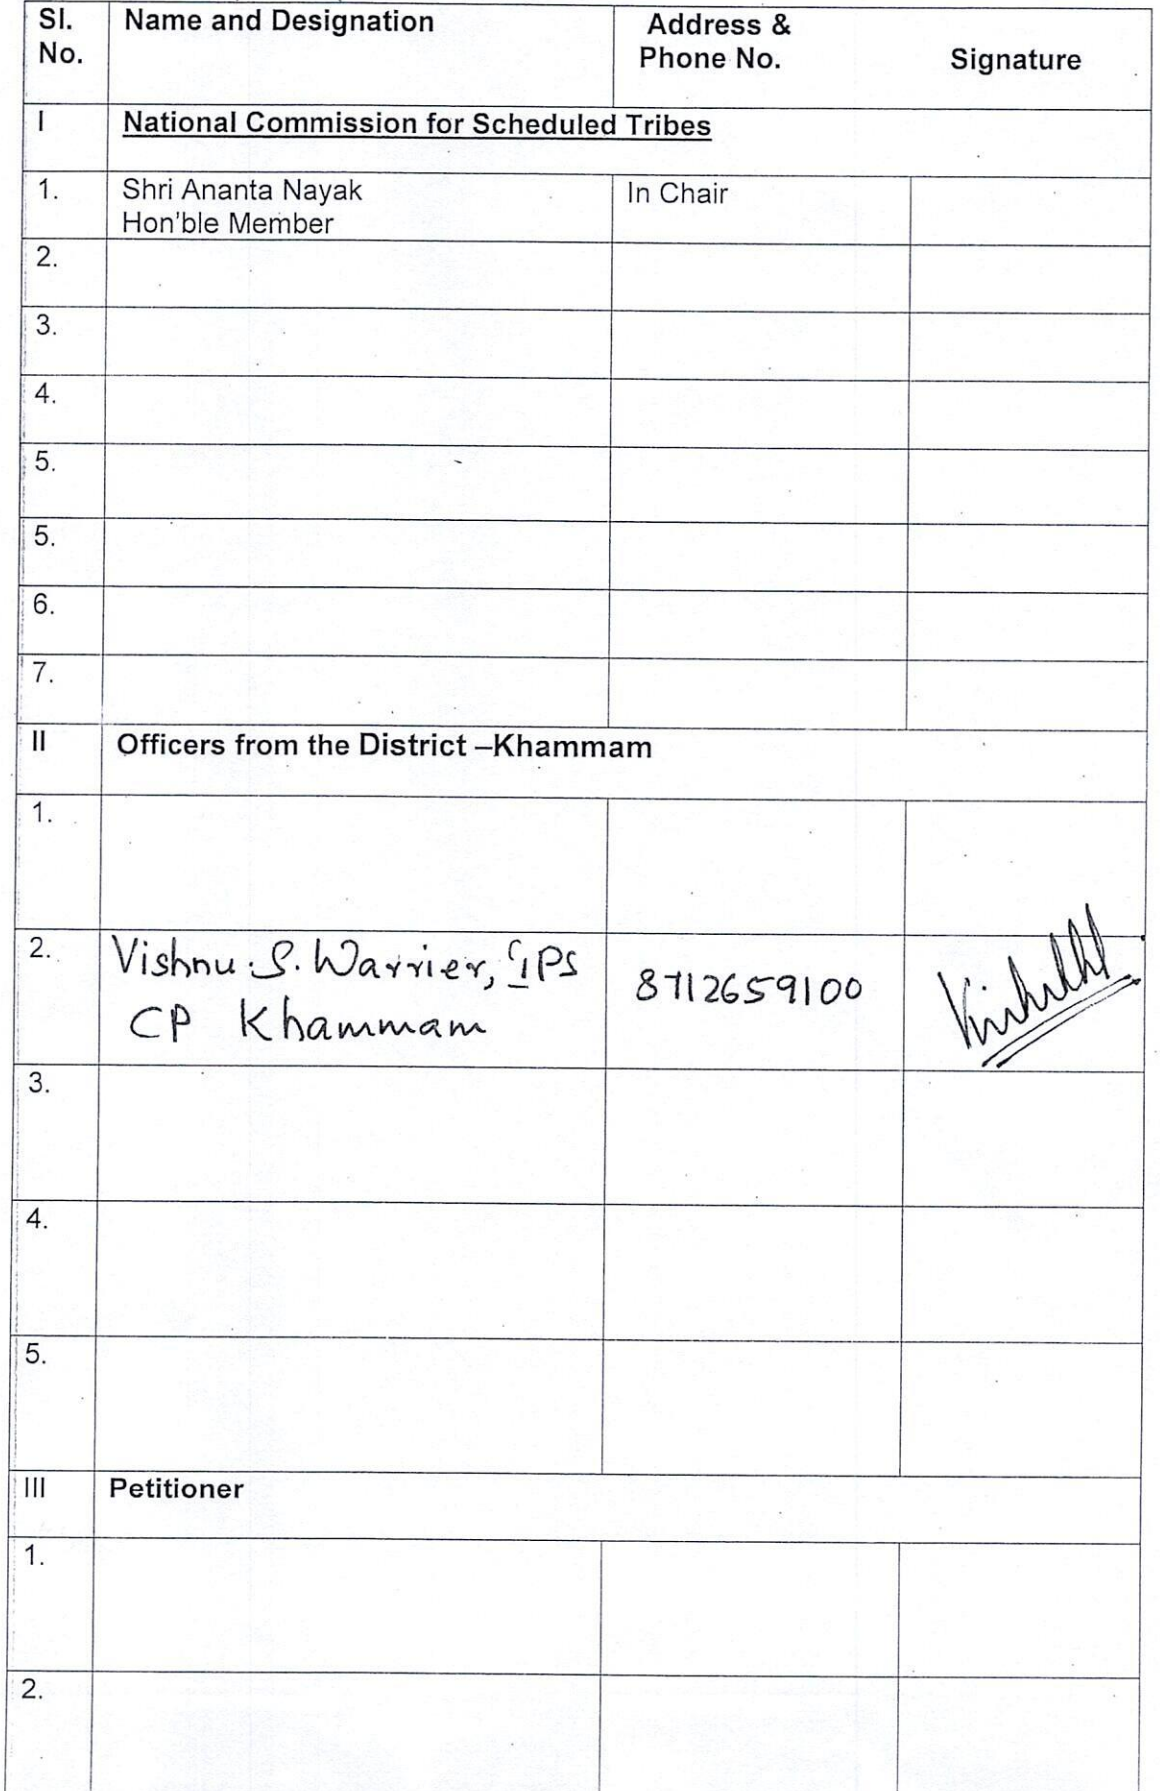 Sl. Name and Designation Address &
No. Phone No. Signature
I National Commission for Scheduled Tribes
1. Shri Ananta Nayak In Chair
Hon'ble Member
2.
3.
4.
5.
5.
6.
7.
II Officers from the District –Khammam
1.
2. Vishnu. S. Warrier, IPS 8712659100
CP Khammam
3.
4.
5.
III Petitioner
1.
2.